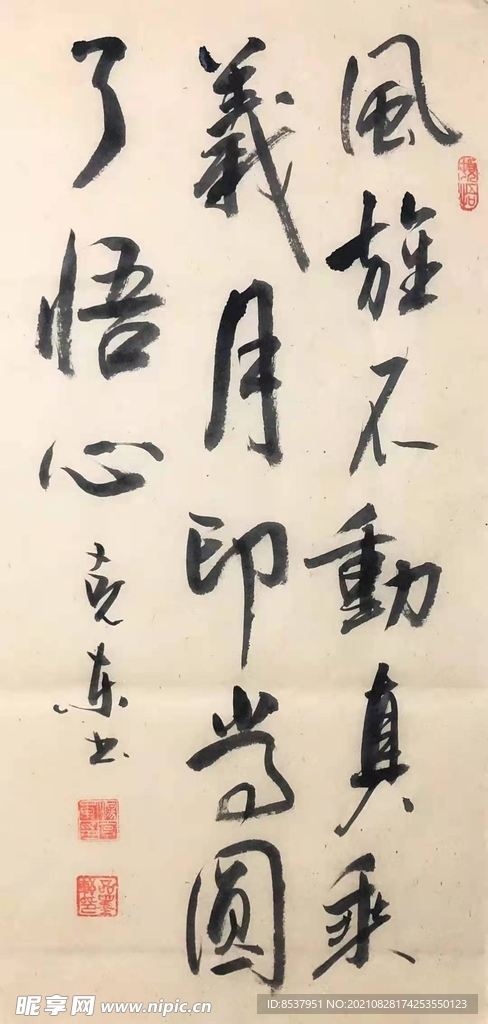 風旌不動真乘
義月印尚圓
了悟心
克东书
昵享网 www.nipic.cn
ID:8537951 NO:20210828174253550123